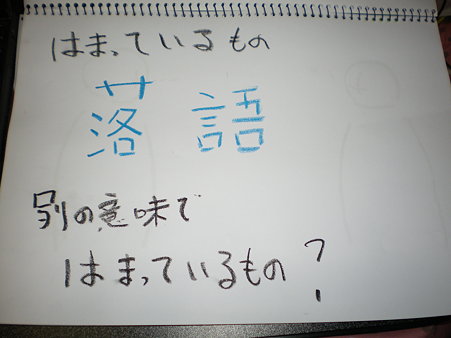 はまっているもの
落語
別の意味で
はまっているもの?